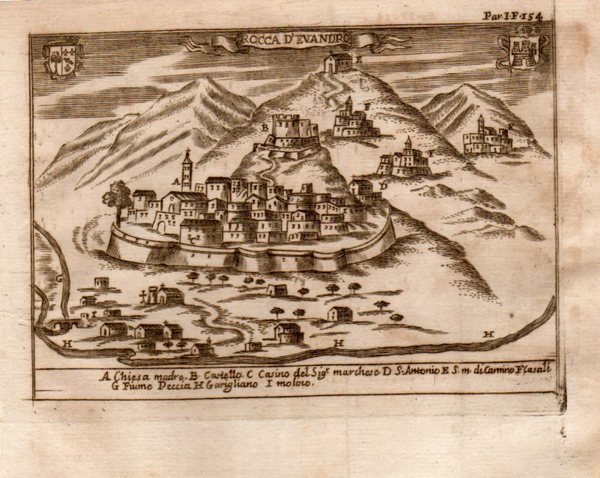 Par. I. F. 154
ROCCA D'EVANDRO
B
F
D
H
H
H
A Chiesa madre. B Castello. C Casino del Sigr. marchese D S. Antonio E S. m. di Camino F Casali
G Fiume Peccia H Garigliano I molino.